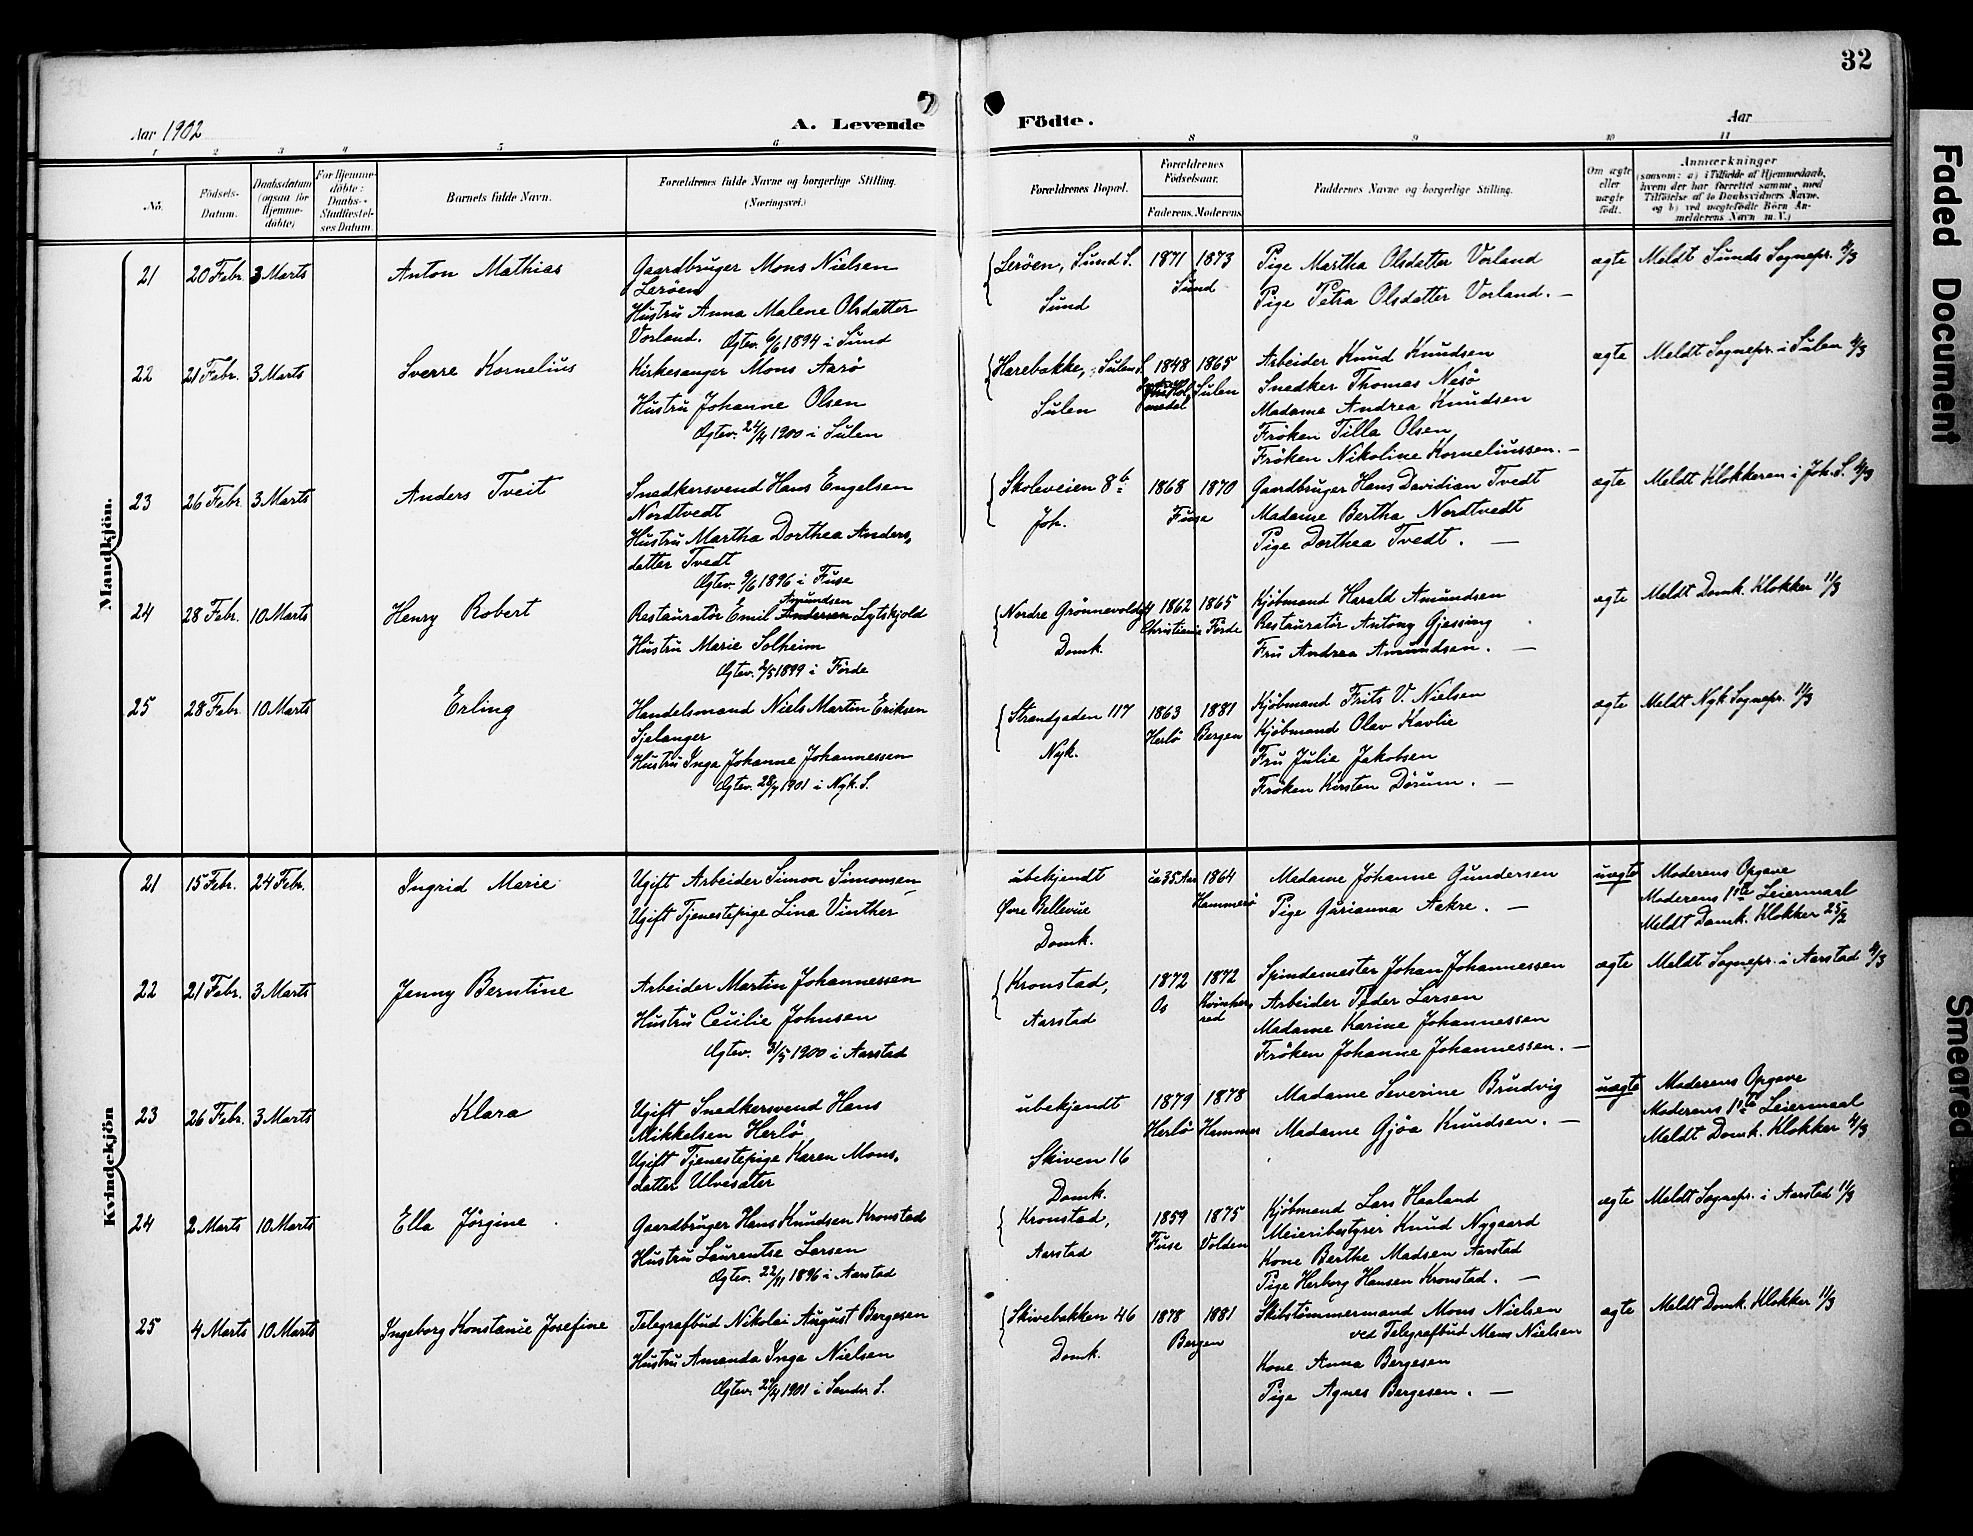 32
Aar 1902
A. Levende Födte.
Aar
1 2 3 4 5 6 8 9 10 11
No.
Födsels-Datum.
Daabsdatum (ogsaa for Hjemme-döbte)
For Hjemme-döbte: Daabs-Stadfæstel-ses Datum.
Barnets fulde Navn.
Forældrenes fulde Navne og borgerlige Stilling. (Næringsvei.)
Forældrenes Bopæl.
Forældrenes Födselsaar.
Faderens. Moderens.
Faddernes Navne og borgerlige Stilling.
Om ægte eller uægte födt.
Anmærkninger
(saasom: a) i Tilfælde af Hjemmedaab, hvem der har forrettet samme, med Tilföielse af to Daabsvidners Navne, og b) ved uægtefödte Börn Anmelderens Navn m. V.)
Mandkjön.
21 20 Febr. 3 Marts Anton Mathias
Gaardbruger Mons Nielsen
Leröen
Hustru Anna Malene Olsdatter
Vorland. Ogtev. 6/6 1894 i Sund
Leröen, Sund S.
Sund
1871 1873
Sund
Pige Martha Olsdatter Vorland
Pige Petra Olsdatter Vorland. —
ægte Meldt Sunds Sognepr. 4/3
22 21 Febr. 3 Marts Sverre Kornelius
Kirkesanger Mons Aarö
Hustru Johanne Olsen
Ogtev. 24/4 1900 i Sulen
Harebakke, Sulen S.
Sulen
1848 1865
Sulen
Arbeider Knud Knudsen
Snedker Thomas Nesö
Madame Andrea Knudsen
Fröken Tilla Olsen
Fröken Nikoline Korneliussen. —
ægte Meldt Sognepr. i Sulen 4/3
23 26 Febr. 3 Marts Anders Tveit
Snedkersvend Hans Engelsen
Nordtvedt
Hustru Martha Dorthea Anders,
datter Tvedt
Ogtev. 9/6 1896 i Fuse
Skoleveien 8b
Joh.
1868 1870
Fuse
Gaardbruger Hans Davidian Tvedt
Madame Bertha Nordtvedt
Pige Dorthea Tvedt. —
ægte Meldt Klokkeren i Joh. S. 4/3
24 28 Febr. 10 Marts Henry Robert
Amundsen
Restauratör Emil Andersen Lytskjold
Hustru Marie Solheim
Ogtev. 2/5 1899 i Förde
Nordre Grönnevoldsg
Domk.
1862 1865
Christiania Förde
Kjöbmand Harald Amundsen
Restauratör Antony Gjessing
Fru Andrea Amundsen. —
ægte Meldt Domk. Klokker 11/3
25 28 Febr. 10 Marts Erling
Handelsmand Niels Martin Eriksen
Sjelanger
Hustru Inga Johanne Johannessen
Ogtev. 28/7 1901 i Nyk. S.
Strandgaden 117
Nyk.
1863 1881
Herlö Bergen
Kjöbmand Frits V. Nielsen
Kjöbmand Olav Kavlie
Fru Julie Jakobsen
Fröken Kirsten Dörum. —
ægte Meldt Nyk Sognepr. 11/3
Kvindekjön
21 15 Febr. 24 Febr. Ingrid Marie
Ugift Arbeider Simon Simonsen
Ugift Tjenestepige Lina Vinther
ubekjendt
Övre Bellevue
Domk.
ca 35 Aar 1864
Hammerö
Madame Johanne Gundersen
Pige Garianna Aakre. —
uægte Moderens Opgave
Moderens 1ste Leiermaal
Meldt Domk. Klokker 25/2
22 21 Febr. 3 Marts Jenny Berntine
Arbeider Martin Johannessen
Hustru Cecilie Johnsen
Ogtev. 31/5 1900 i Aarstad
Kronstad,
Aarstad
1872 1872
Os Kvinher,
red
Spindemester Johan Johannessen
Arbeider Peder Larsen
Madame Karine Johannessen
Fröken Johanne Johannessen. —
ægte Meldt Sognepr. i Aarstad 4/3
23 26 Febr. 3 Marts Klara
Ugift Snedkersvend Hans
Mikkelsen Herlö
Ugift Tjenestepige Karen Mons,
datter Ulvesæter
ubekjendt
Skiven 16
Domk.
1879 1878
Herlö Hammer
Madame Severine Brudvig
Madame Gjöa Knudsen. —
uægte Moderens Opgave
Moderens 1ste Leiermaal
Meldt Domk. Klokker 4/3
24 2 Marts 10 Marts Ella Jörgine
Gaardbruger Hans Knudsen Kronstad
Hustru Laurentse Larsen
Ogtev. 22/11 1896 i Aarstad
Kronstad,
Aarstad
1859 1875
Fuse Volden
Kjöbmand Lars Haaland
Meieribestyrer Knud Nygaard
Kone Berthe Madsen Aarstad
Pige Herborg Hansen Kronstad. —
ægte Meldt Sognepr. i Aarstad 11/3
25 4 Marts 10 Marts Ingeborg Konstanse Josefine
Telegrafbud Nikolai August Bergesen
Hustru Amanda Inga Nielsen
Ogtev. 21/4 1901 i Sandv. S.
Skivebakken 46
Domk.
1878 1881
Bergen
Skibstömmermand Mons Nielsen
ved Telegrafbud Mens Nielsen
Kone Anna Bergesen
Pige Agnes Bergesen. —
ægte Meldt Domk. Klokker 11/3
Faded Document
Smeared